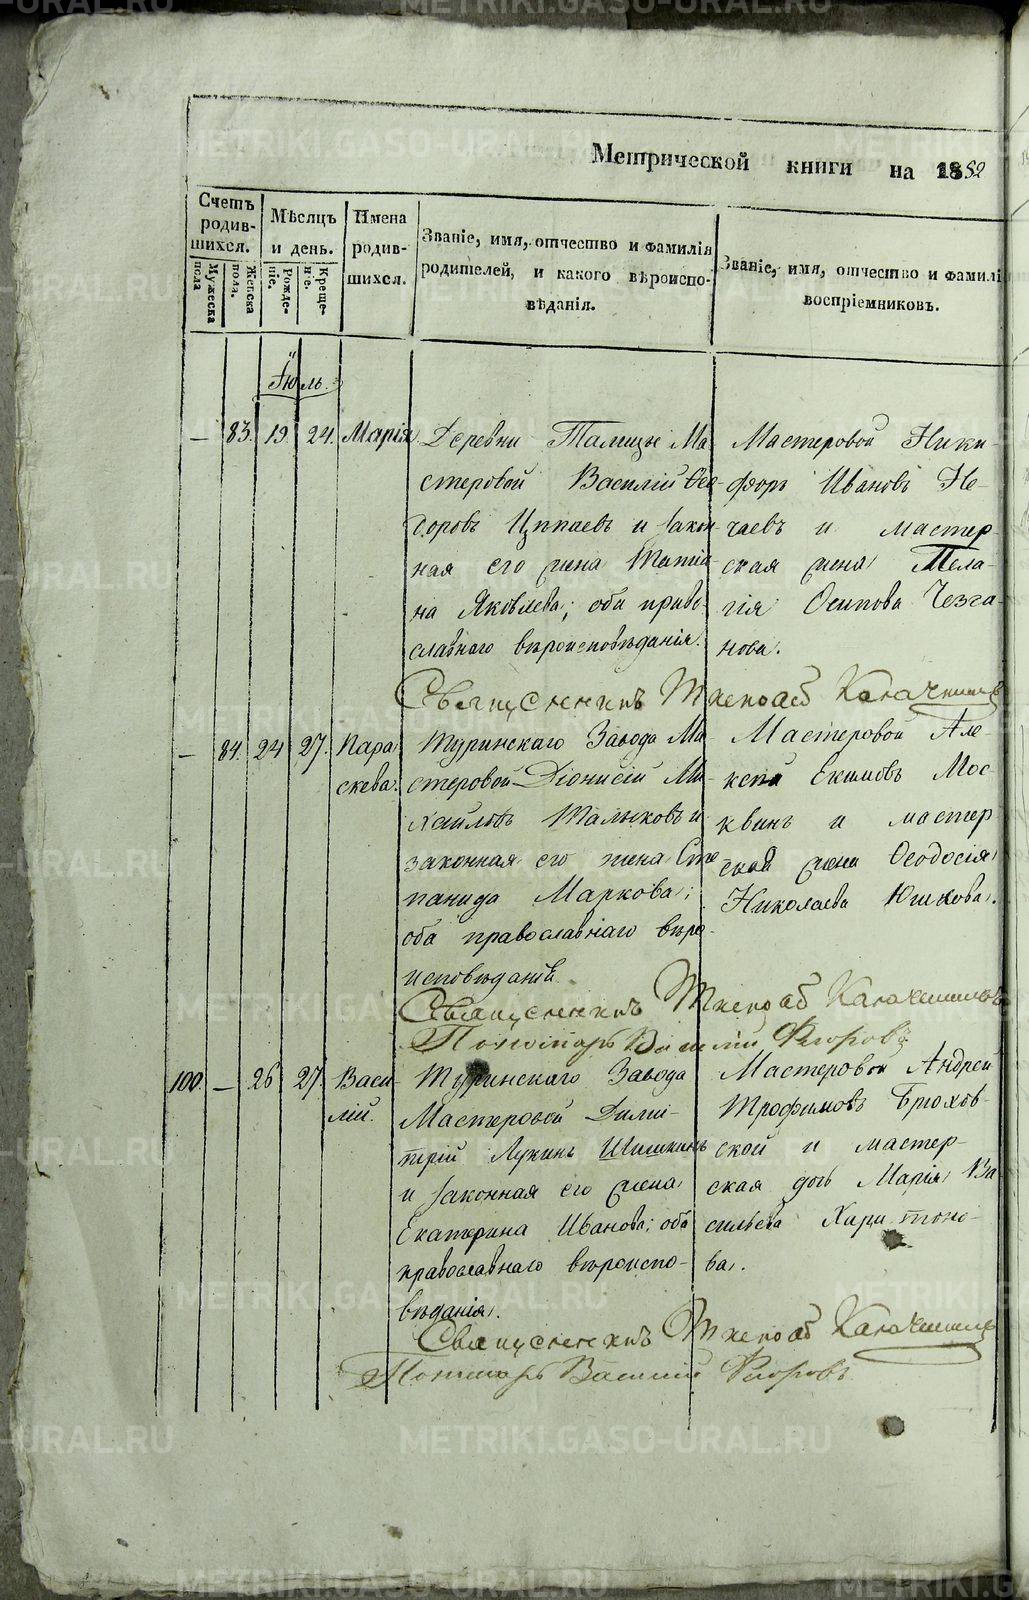 METRIKI.GASO-URAL.RU
Метрической книги на 1852
Счетъ родив-шихся.
Мужеска пола
Женска пола.
Мѣсяцъ и день.
Рожде-ніе.
Креще-ніе.
Имена родив-шихся.
Званіе, имя, отчество и фамилія родителей, и какого вѣроиспо-вѣданія.
Званіе, имя, отчество и фамилі воспріемниковъ.
Іюль.
— 83. 19 24. Марія
Деревни Талицы Ма-
стеровой Василій Ѳео-
доровъ Ципаевъ и закон-
ная его жена Татія-
на Яковлева; оба право-
славнаго вѣроисповѣданія.
Мастеровой Ники-
форъ Ивановъ Не-
чаевъ и мастер-
ская жена Пела-
гія Осипова Чезга-
нова.
Священникъ Калачниковъ
— 84. 24 27. Пара-
скева.
Туринскаго Завода Ма-
стеровой Діонисій Ми-
хайловъ Талыковъ и
законная его жена Сте-
панида Маркова;
оба православнаго вѣро-
исповѣданія.
Мастеровой Але-
ксѣй Екимовъ Мос-
квинъ и мастер
ская жена Ѳеодосія
Николаева Юшкова.
Священникъ Калачниковъ
Пономарь Василій Флоровъ
100. — 26 27. Васи-
лій.
Туринскаго Завода
Мастеровой Дими-
трій Лукинъ Шишкинъ
и законная его жена
Екатерина Иванова; оба
православнаго вѣроиспо-
вѣданія.
Мастеровой Андрей
Трофимовъ Брюхов-
ской и мастер-
ская дочь Марія Ва-
сильева Харитоно-
ва.
Священникъ Калачниковъ
Пономарь Василій Флоровъ